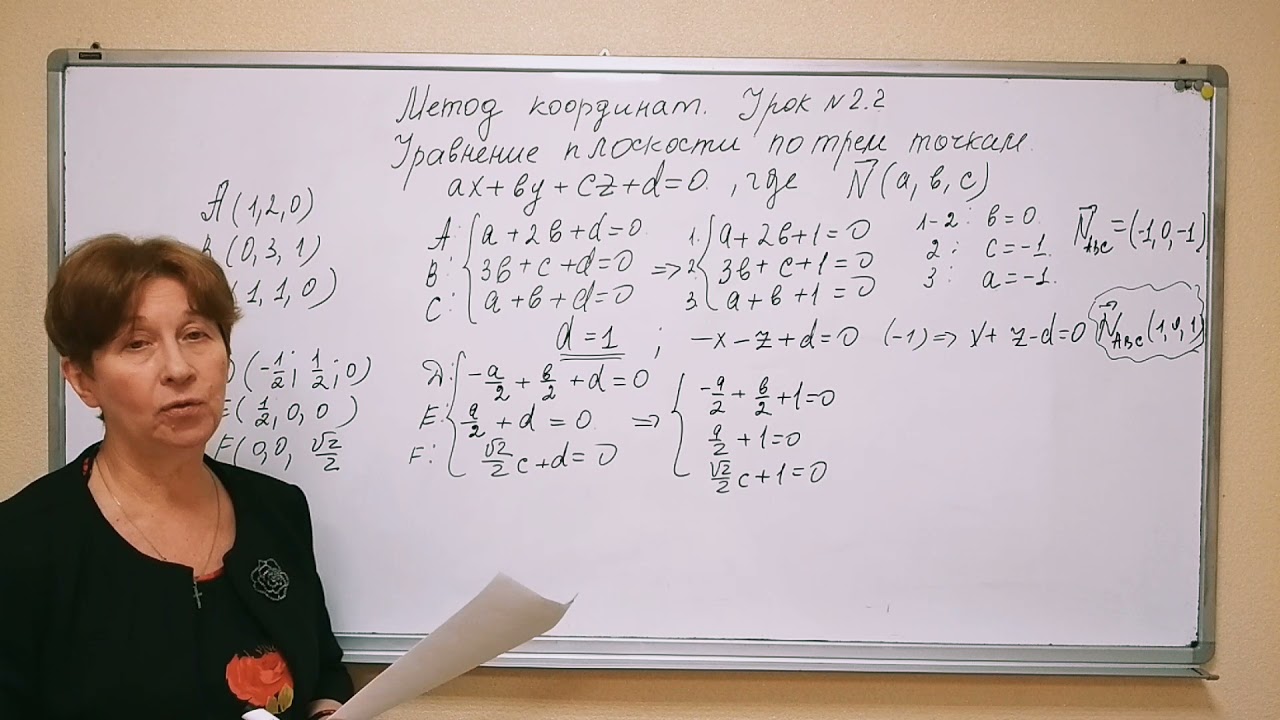 Метод координат. Урок №2.2
Уравнение плоскости по трем точкам.
ax+вy+cz+d=0. , где N⃗(a, в, c)
A(1,2,0)
(0, 3, 1)
(1, 1, 0)
A: {a+2в+d=0.
B: {3в+c+d=0
C: {a+в+d=0
=> 1. {a+2в+1=0
2. {3в+c+1=0
3. {a+в+1=0
1-2: в=0.
2: c=-1.
3: a=-1.
N⃗ABC=(-1,0,-1)
d=1 ; -x-z+d=0 (-1)=> x+z-d=0 N⃗ABC(1,0,1)
(-1/2; 1/2; 0)
E(1/2, 0, 0)
F(0,0, √2/2
D: {-a/2+в/2+d=0
E: {a/2+d=0.
F: {√2/2c+d=0
=> {-a/2+в/2+1=0
{a/2+1=0
{√2/2c+1=0